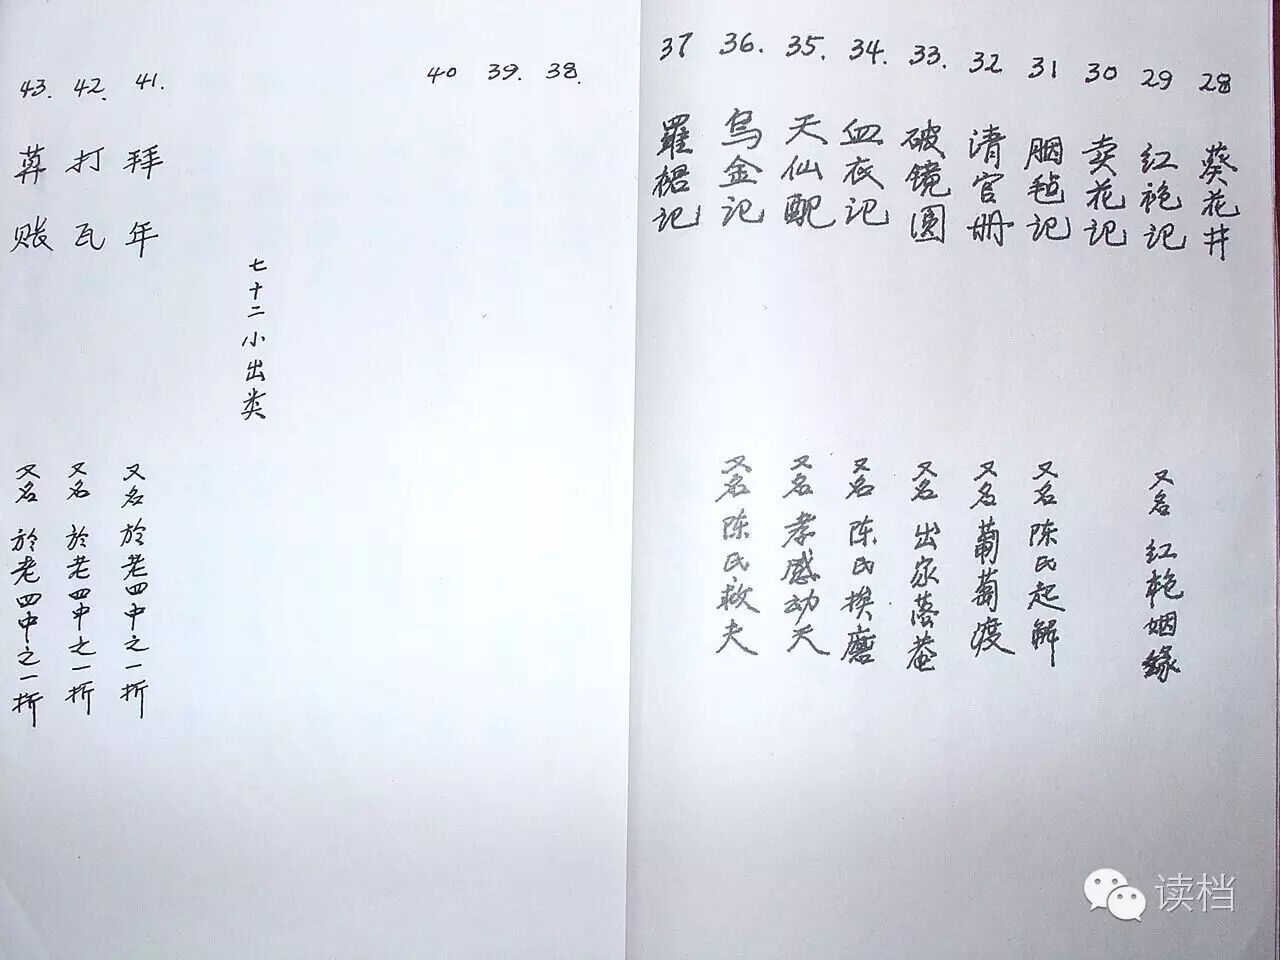 28 葵花井
29 红袍记 又名 红艳姻缘
30 卖花记
31 胭毡记 又名 陈氏起解
32 清官册 又名 葡萄渡
33. 破镜圆 又名 出家落菴
34. 血衣记 又名 陈氏挨磨
35. 天仙配 又名 孝感动天
36. 乌金记 又名 陈氏救夫
37 羅裙记
38.
39.
40
七十二小出类
41. 拜年 又名 於老四中之一折
42. 打瓦 又名 於老四中之一折
43. 算账 又名 於老四中之一折
读档